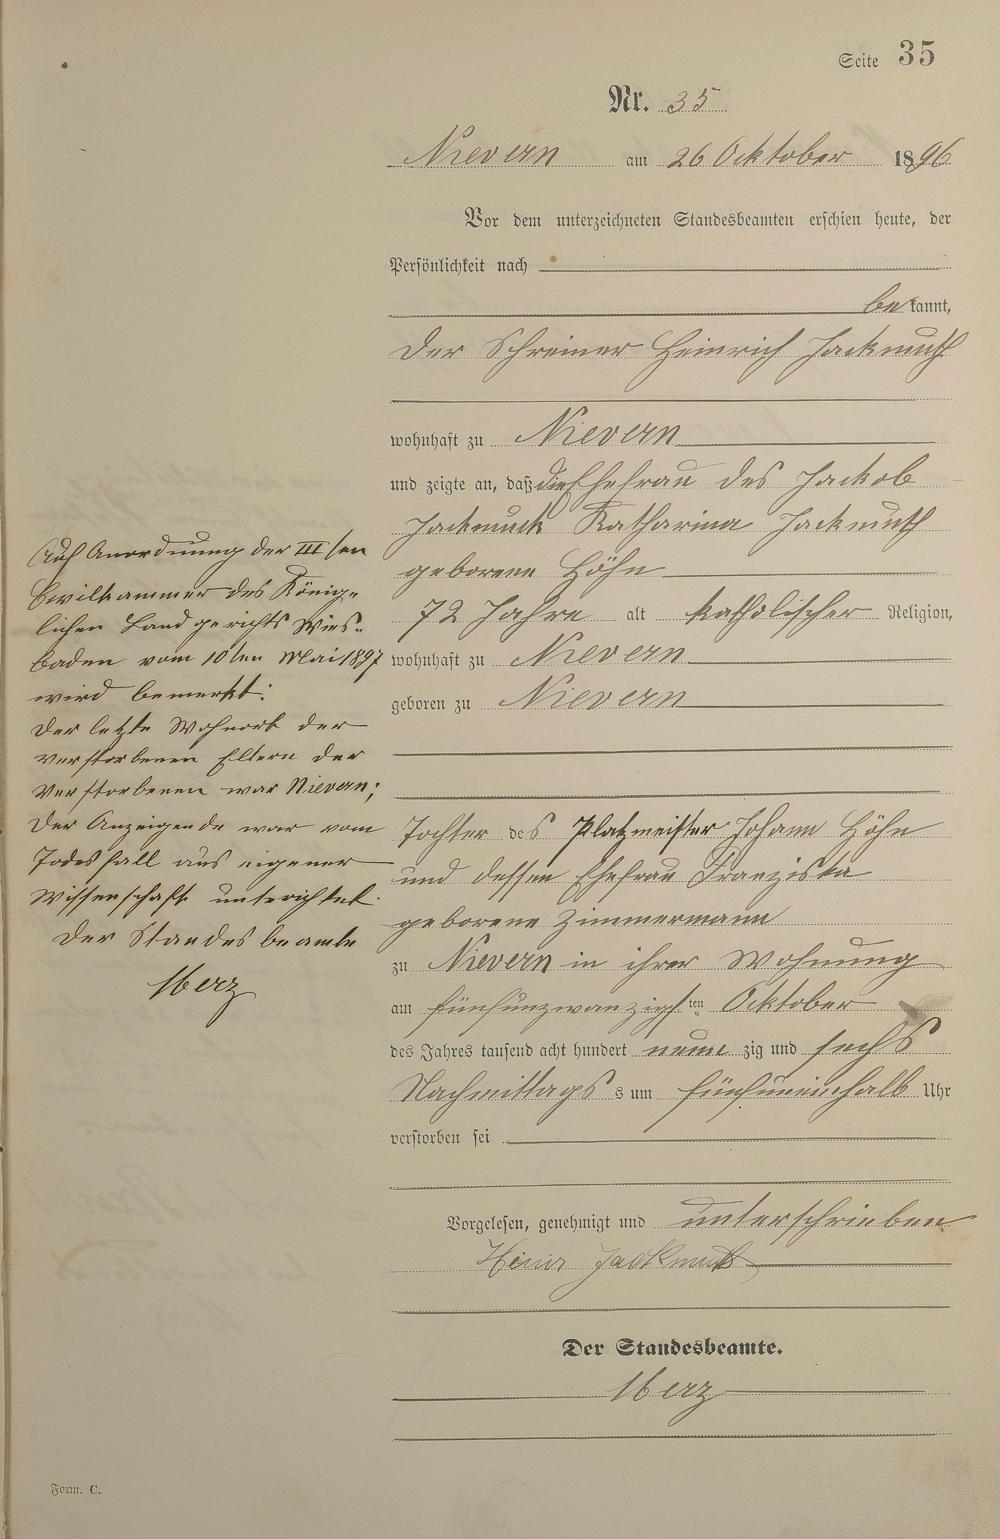 Seite 35
Nr. 35
Nievern am 26 Ocktober 1896
Vor dem unterzeichneten Standesbeamten erschien heute, der
Persönlichkeit nach
bekannt,
der Schreiner Heinrich Jackmuth
wohnhaft zu Nievern
und zeigte an, daß die Ehefrau des Jackob
Jackmuth Katharina Jackmuth
geborene Höhn
72 Jahre alt katholischer Religion,
wohnhaft zu Nievern
geboren zu Nievern
Tochter des Platzmeister Johann Höhn
und dessen Ehefrau Franziska
geborene Zimmermann
zu Nievern in ihrer Wohnung
am fünfunzwanzigsten Ocktober
des Jahres tausend acht hundert neunzig und sechs
Nachmittags s um fünfuneinhalb Uhr
verstorben sei
Vorgelesen, genehmigt und unterschrieben
Heinr Jackmuth
Der Standesbeamte.
Merz
Auf Anordnung der III ten
Civilkammer des König-
lichen Landgerichts Wies-
baden vom 10ten Mai 1897
wird bemerkt:
Der letzte Wohnort der
verstorbenen Eltern der
Verstorbenen war Nievern;
Der Anzeigende war vom
Todesfall aus eigener
Wissenschaft unterichtet.
Der Standesbeamte
Merz
Form. C.